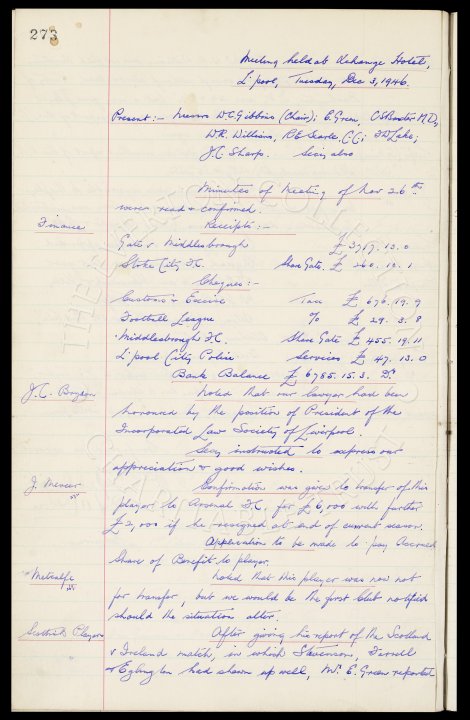 273
Meeting held at Exchange Hotel,
L'pool, Tuesday, Dec 3, 1946.
Present :- Messrs W.C. Gibbins (Chair); E. Green, C.S. Baxter M.D.,
W.R. Williams, R.E. Searle, C.C.; T.W. Lake;
J.C. Sharp. Secy, also
Minutes of Meeting of Nov 26th
were read & confirmed.
Finance Receipts :-
Gate v Middlesbrough £ 3717. 13. 0
Stoke City F.C. Share Gate. £ 260. 10. 1
Cheques :-
Customs & Excise Tax £ 676. 19. 9
Football League % £ 29. 3. 8
Middlesbrough F.C. Share Gate £ 455. 19. 11
L'pool City Police Services £ 47. 13. 0
Bank Balance £ 6785. 15. 3. Dr.
J.C. Bryson Noted that our lawyer had been
honoured by the position of President of the
Incorporated Law Society of Liverpool.
Secy instructed to express our
appreciation & good wishes.
J. Mercer Confirmation was given to transfer of this
player to Arsenal F.C. for £6,000 with further
£2,000 if he resigned at end of current season.
Application to be made to pay Accrued
Share of Benefit to player.
Metcalfe Noted that this player was now not
for transfer, but we would be the first Club notified
should the situation alter.
Scottish Players After giving his report of the Scotland
v Ireland match, in which Stevenson, Farrell
& Eglington had shown up well, Mr. E. Green reported